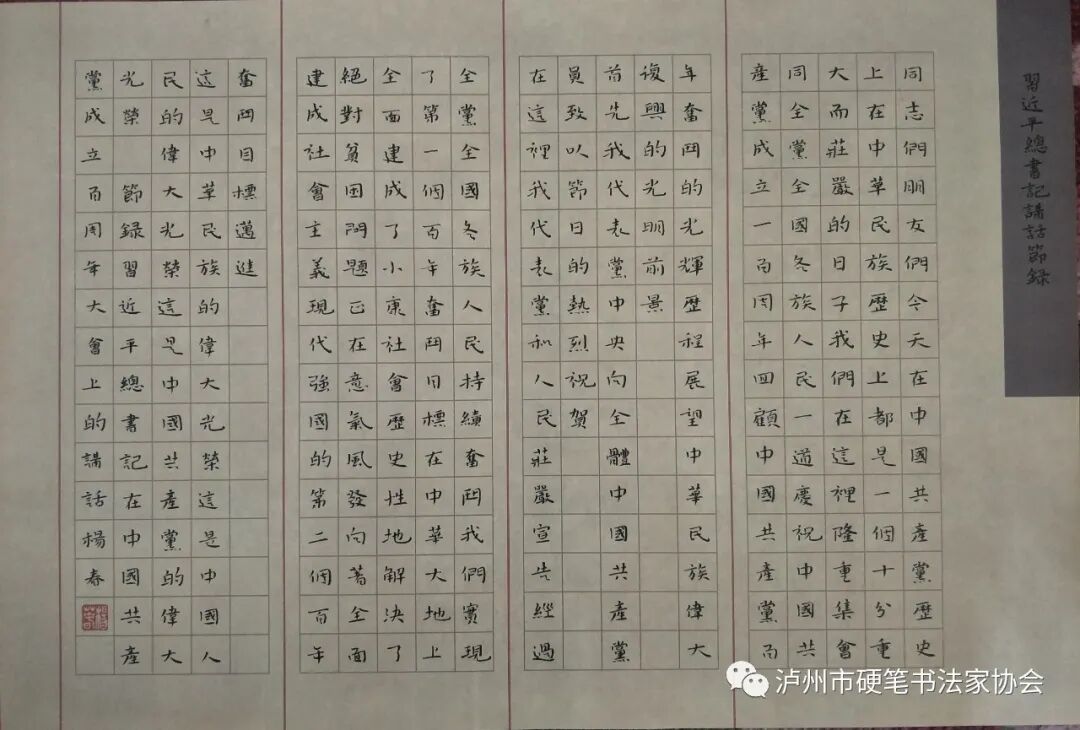 習近平總書記講話節録
同志們朋友們今天在中國共產黨歷史
上在中華民族歷史上都是一個十分重
大而莊嚴的日子我們在這裡隆重集會
同全黨全國各族人民一道慶祝中國共
產黨成立一百周年回顧中國共產黨百
年奮鬥的光輝歷程展望中華民族偉大
復興的光明前景
首先我代表黨中央向全體中國共產黨
員致以節日的熱烈祝賀
在這裡我代表黨和人民莊嚴宣告經過
全黨全國各族人民持續奮鬥我們實現
了第一個百年奮鬥目標在中華大地上
全面建成了小康社會歷史性地解決了
絕對貧困問題正在意氣風發向著全面
建成社會主義現代強國的第二個百年
奮鬥目標邁進
這是中華民族的偉大光榮這是中國人
民的偉大光榮這是中國共產黨的偉大
光榮 節録習近平總書記在中國共產
黨成立百周年大會上的講話楊春
泸州市硬笔书法家协会